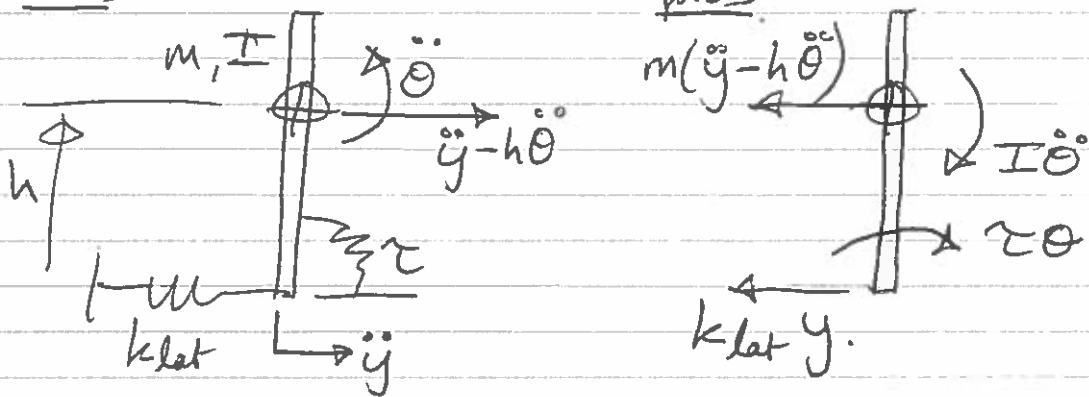 m, I
θ̈
ÿ-hθ̈
h
τ
k lat
ÿ
m(ÿ-hθ̈)
Iθ̈
τθ
k lat y.